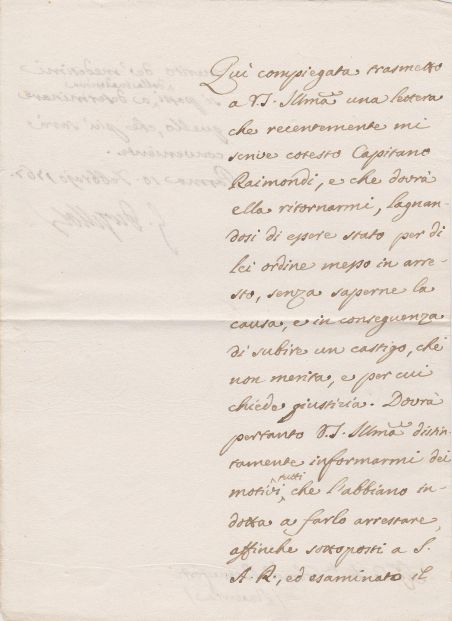 Quì compiegata trasmetto
a V. S. Illma una lettera
che recentemente mi
scrive cotesto Capitano
Raimondi, e che dovrà
ella ritornarmi, lagnan-
dosi di essere stato per di
lei ordine messo in arre-
sto, senza saperne la
causa, e in conseguenza
di subire un castigo, che
non merita, e per cui
chiede giustizia. Dovrà
pertanto V. S. Illma distin-
tamente informarmi dei
motivi tutti, che l'abbiano in-
dotta a farlo arrestare,
affinche sottoposti a S.
A. R., ed esaminato il